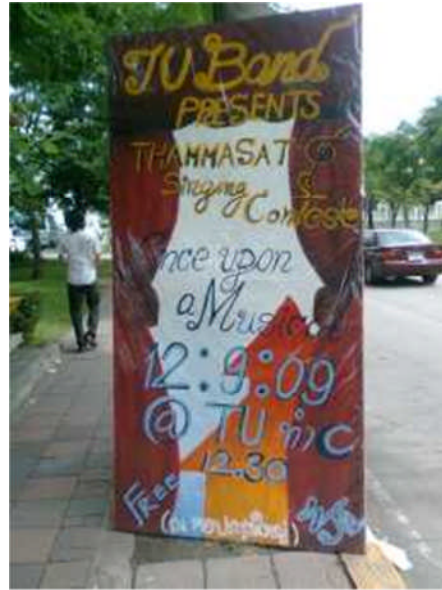 TU Band
PRESENTS
THAMMASAT
Singing Contest
Once upon
a Musical
12:9:09
@ TU
12.30
Free